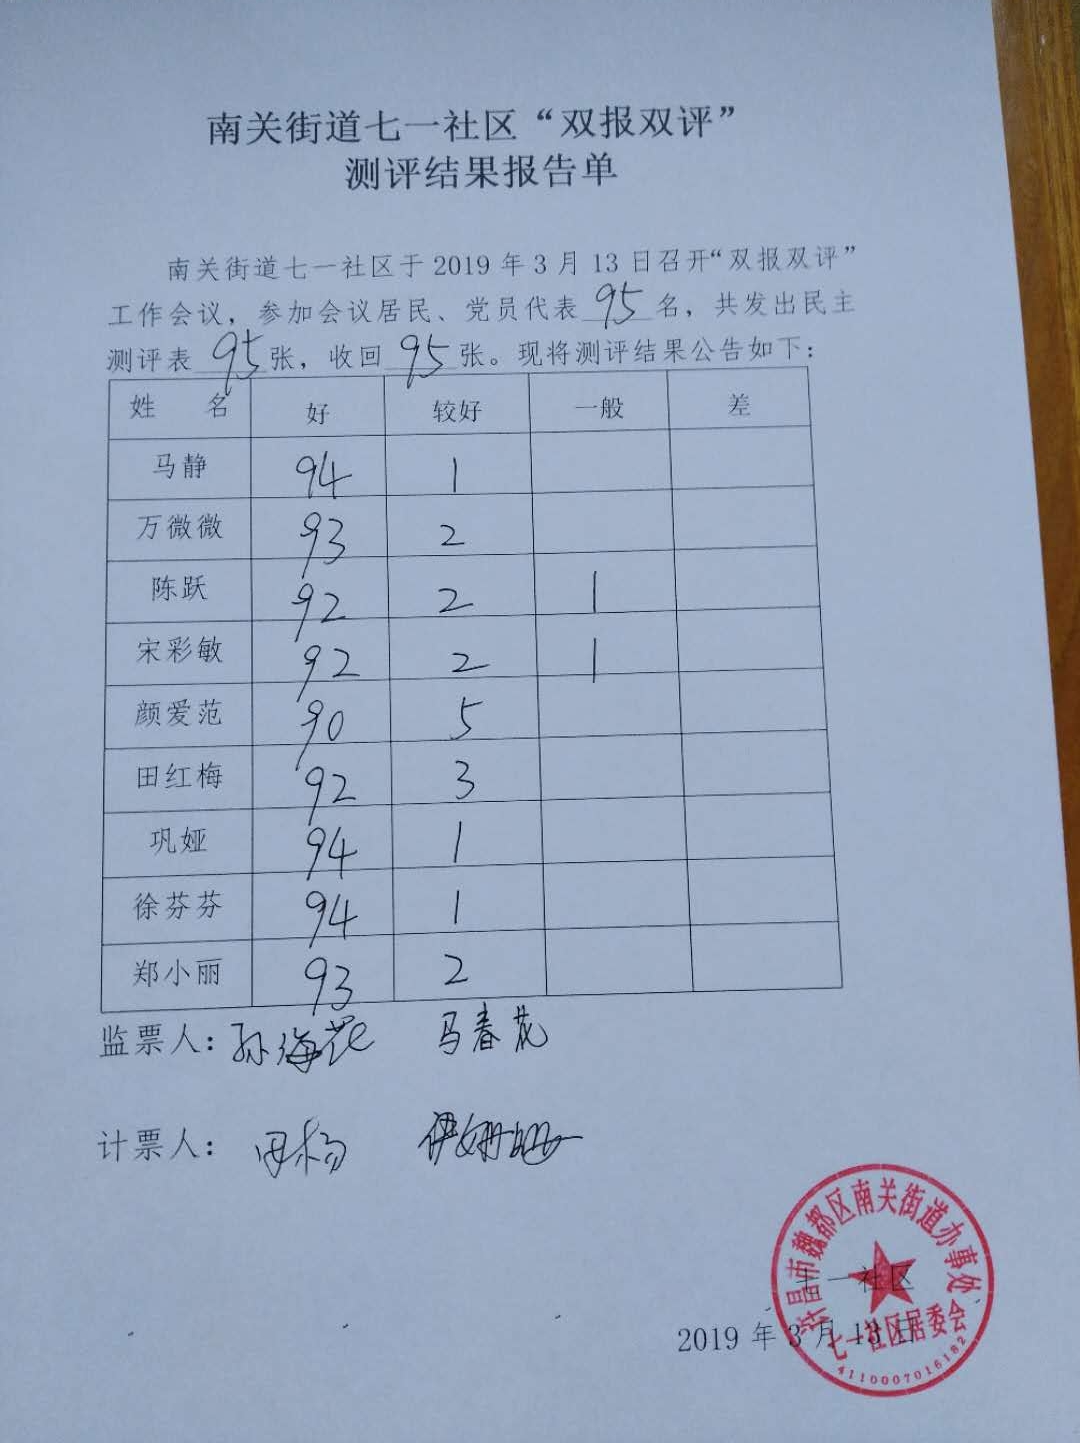 南关街道七一社区“双报双评”
测评结果报告单
南关街道七一社区于2019年3月13日召开“双报双评”
工作会议，参加会议居民、党员代表95名，共发出民主
测评表95张，收回95张。现将测评结果公告如下：
姓 名 好 较好 一般 差
马静 94 1
万微微 93 2
陈跃 92 2 1
宋彩敏 92 2 1
颜爱范 90 5
田红梅 92 3
巩娅 94 1
徐芬芬 94 1
郑小丽 93 2
监票人：孙海花 马春花
计票人：田杨 伊姗姗
许昌市魏都区南关街道办事处
七一社区
七一社区居委会
2019年3月13日
4110007016182